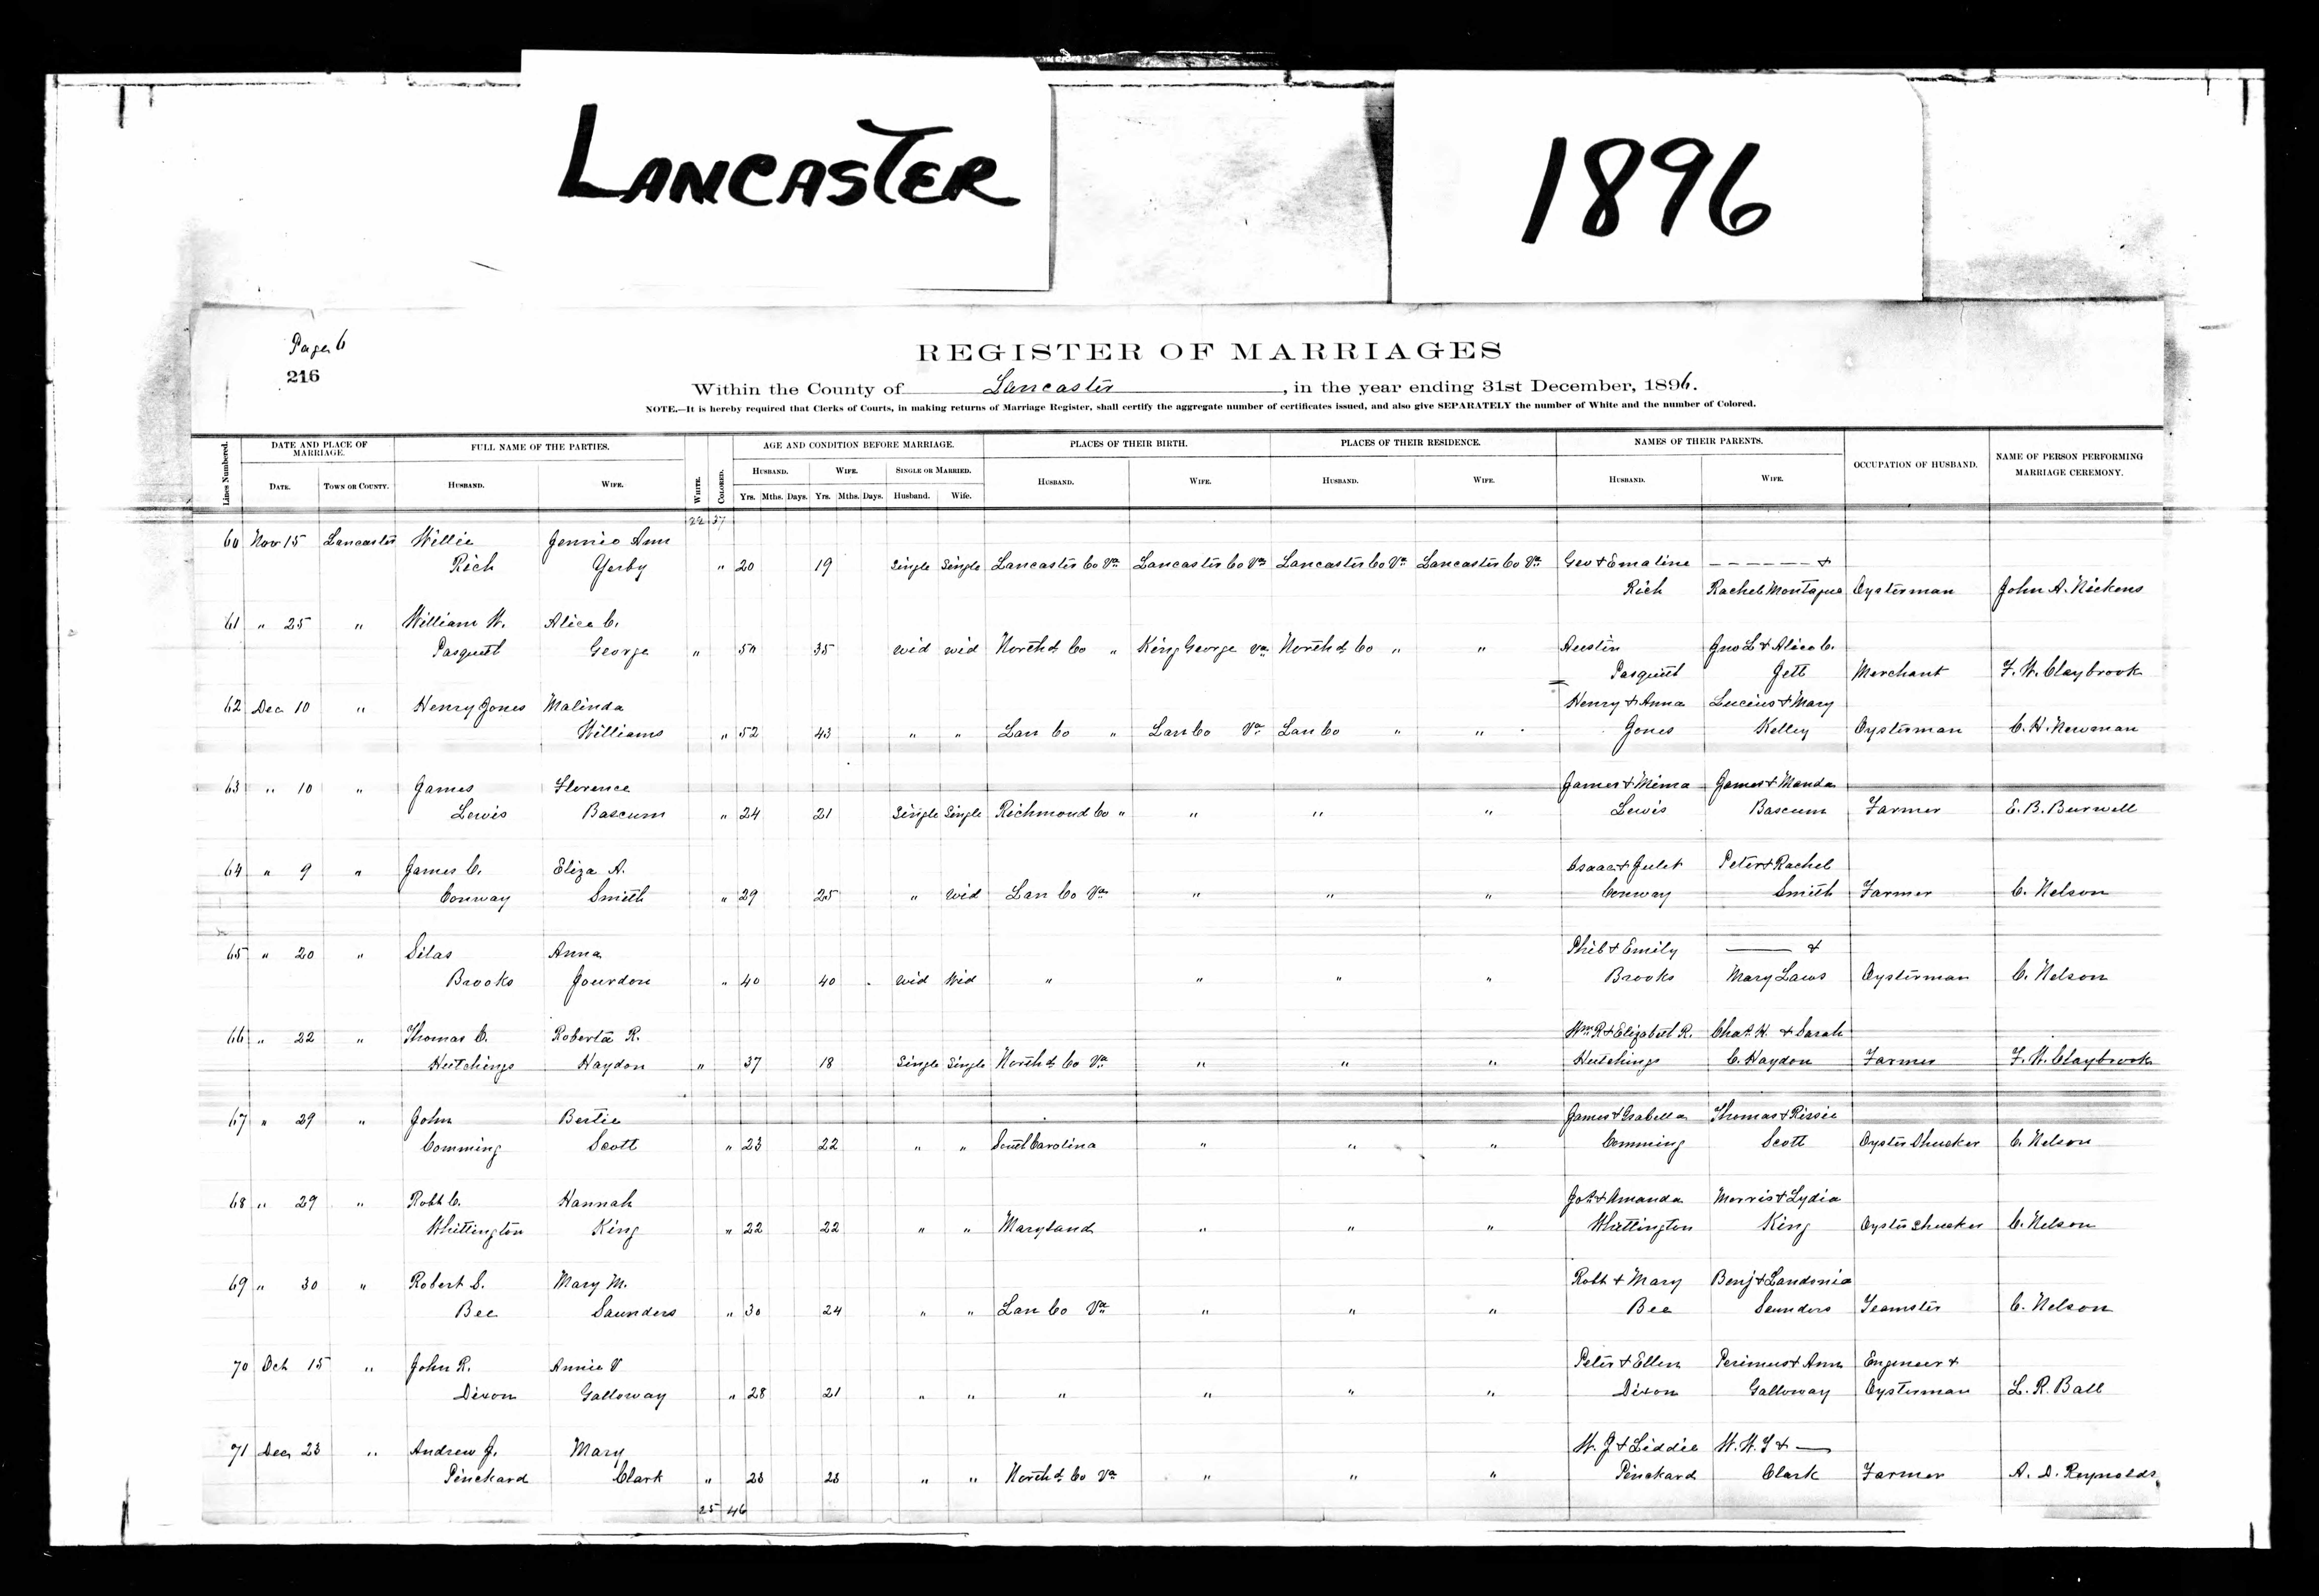 LANCASTER
1896
Page 6
216
REGISTER OF MARRIAGES
Within the County of Lancaster, in the year ending 31st December, 1896.
NOTE.—It is hereby required that Clerks of Courts, in making returns of Marriage Register, shall certify the aggregate number of certificates issued, and also give SEPARATELY the number of White and the number of Colored.
Lines Numbered. DATE AND PLACE OF MARRIAGE. FULL NAME OF THE PARTIES. WHITE. COLORED. AGE AND CONDITION BEFORE MARRIAGE. PLACES OF THEIR BIRTH. PLACES OF THEIR RESIDENCE. NAMES OF THEIR PARENTS. OCCUPATION OF HUSBAND. NAME OF PERSON PERFORMING MARRIAGE CEREMONY.
HUSBAND. WIFE. SINGLE OR MARRIED.
DATE. TOWN OR COUNTY. HUSBAND. WIFE. Yrs. Mths. Days. Yrs. Mths. Days. Husband. Wife. HUSBAND. WIFE. HUSBAND. WIFE. HUSBAND. WIFE.
22 37
60 Nov 15 Lancaster Willie Jennie Ann
Rich Yerby " 20 19 Single Single Lancaster Co Va Lancaster Co Va Lancaster Co Va Lancaster Co Va Geo & Emaline — — — — — — &
Rich Rachel Montague Oysterman John A. Nickens
61 " 25 " William W. Alice C.
Pasquett George " 50 35 Wid Wid North'd Co " King George Va North'd Co " " Austin Jno L & Alice C.
Pasquett Jett Merchant F. W. Claybrook
62 Dec 10 " Henry Jones Malinda Henry & Anna Lucius & Mary
Williams " 52 43 " " Lan Co " Lan Co Va Lan Co " " Jones Kelley Oysterman C. H. Newman
63 " 10 " James Florence James & Mima James & Manda
Lewis Bascum " 24 21 Single Single Richmond Co " " " " Lewis Bascum Farmer E. B. Burwell
64 " 9 " James C. Eliza A. Isaac & Julet Peter & Rachel
Conway Smith " 29 25 " Wid Lan Co Va " " " Conway Smith Farmer C. Nelson
65 " 20 " Silas Anna Phil & Emily —— &
Brooks Jourdon " 40 40 Wid Wid " " " " Brooks Mary Laws Oysterman C. Nelson
66 " 22 " Thomas C. Roberta R. Wm R & Elizabeth R. Chas. H. & Sarah
Hutchings Haydon " 37 18 Single Single North'd Co Va " " " Hutchings C. Haydon Farmer F. W. Claybrook
67 " 29 " John Bertie James & Isabella Thomas & Rissie
Comming Scott " 23 22 " " South Carolina " " " Comming Scott Oyster Shucker C. Nelson
68 " 29 " Robt C. Hannah Jos. & Amanda Morris & Lydia
Whittington King " 22 22 " " Maryland " " " Whittington King Oyster Shucker C. Nelson
69 " 30 " Robert S. Mary M. Robt & Mary Benj & Landonia
Bee Saunders " 30 24 " " Lan Co Va " " " Bee Saunders Teamster C. Nelson
70 Oct 15 " John R. Annie V Peter & Ellen Perimus & Ann Engineer &
Dixon Galloway " 28 21 " " " " " " Dixon Galloway Oysterman L. R. Ball
71 Dec 23 " Andrew J. Mary W. J & Liddie W. W. Y & —
Pinckard Clark " 23 23 " " North'd Co Va " " " Pinckard Clark Farmer A. D. Reynolds
25 46